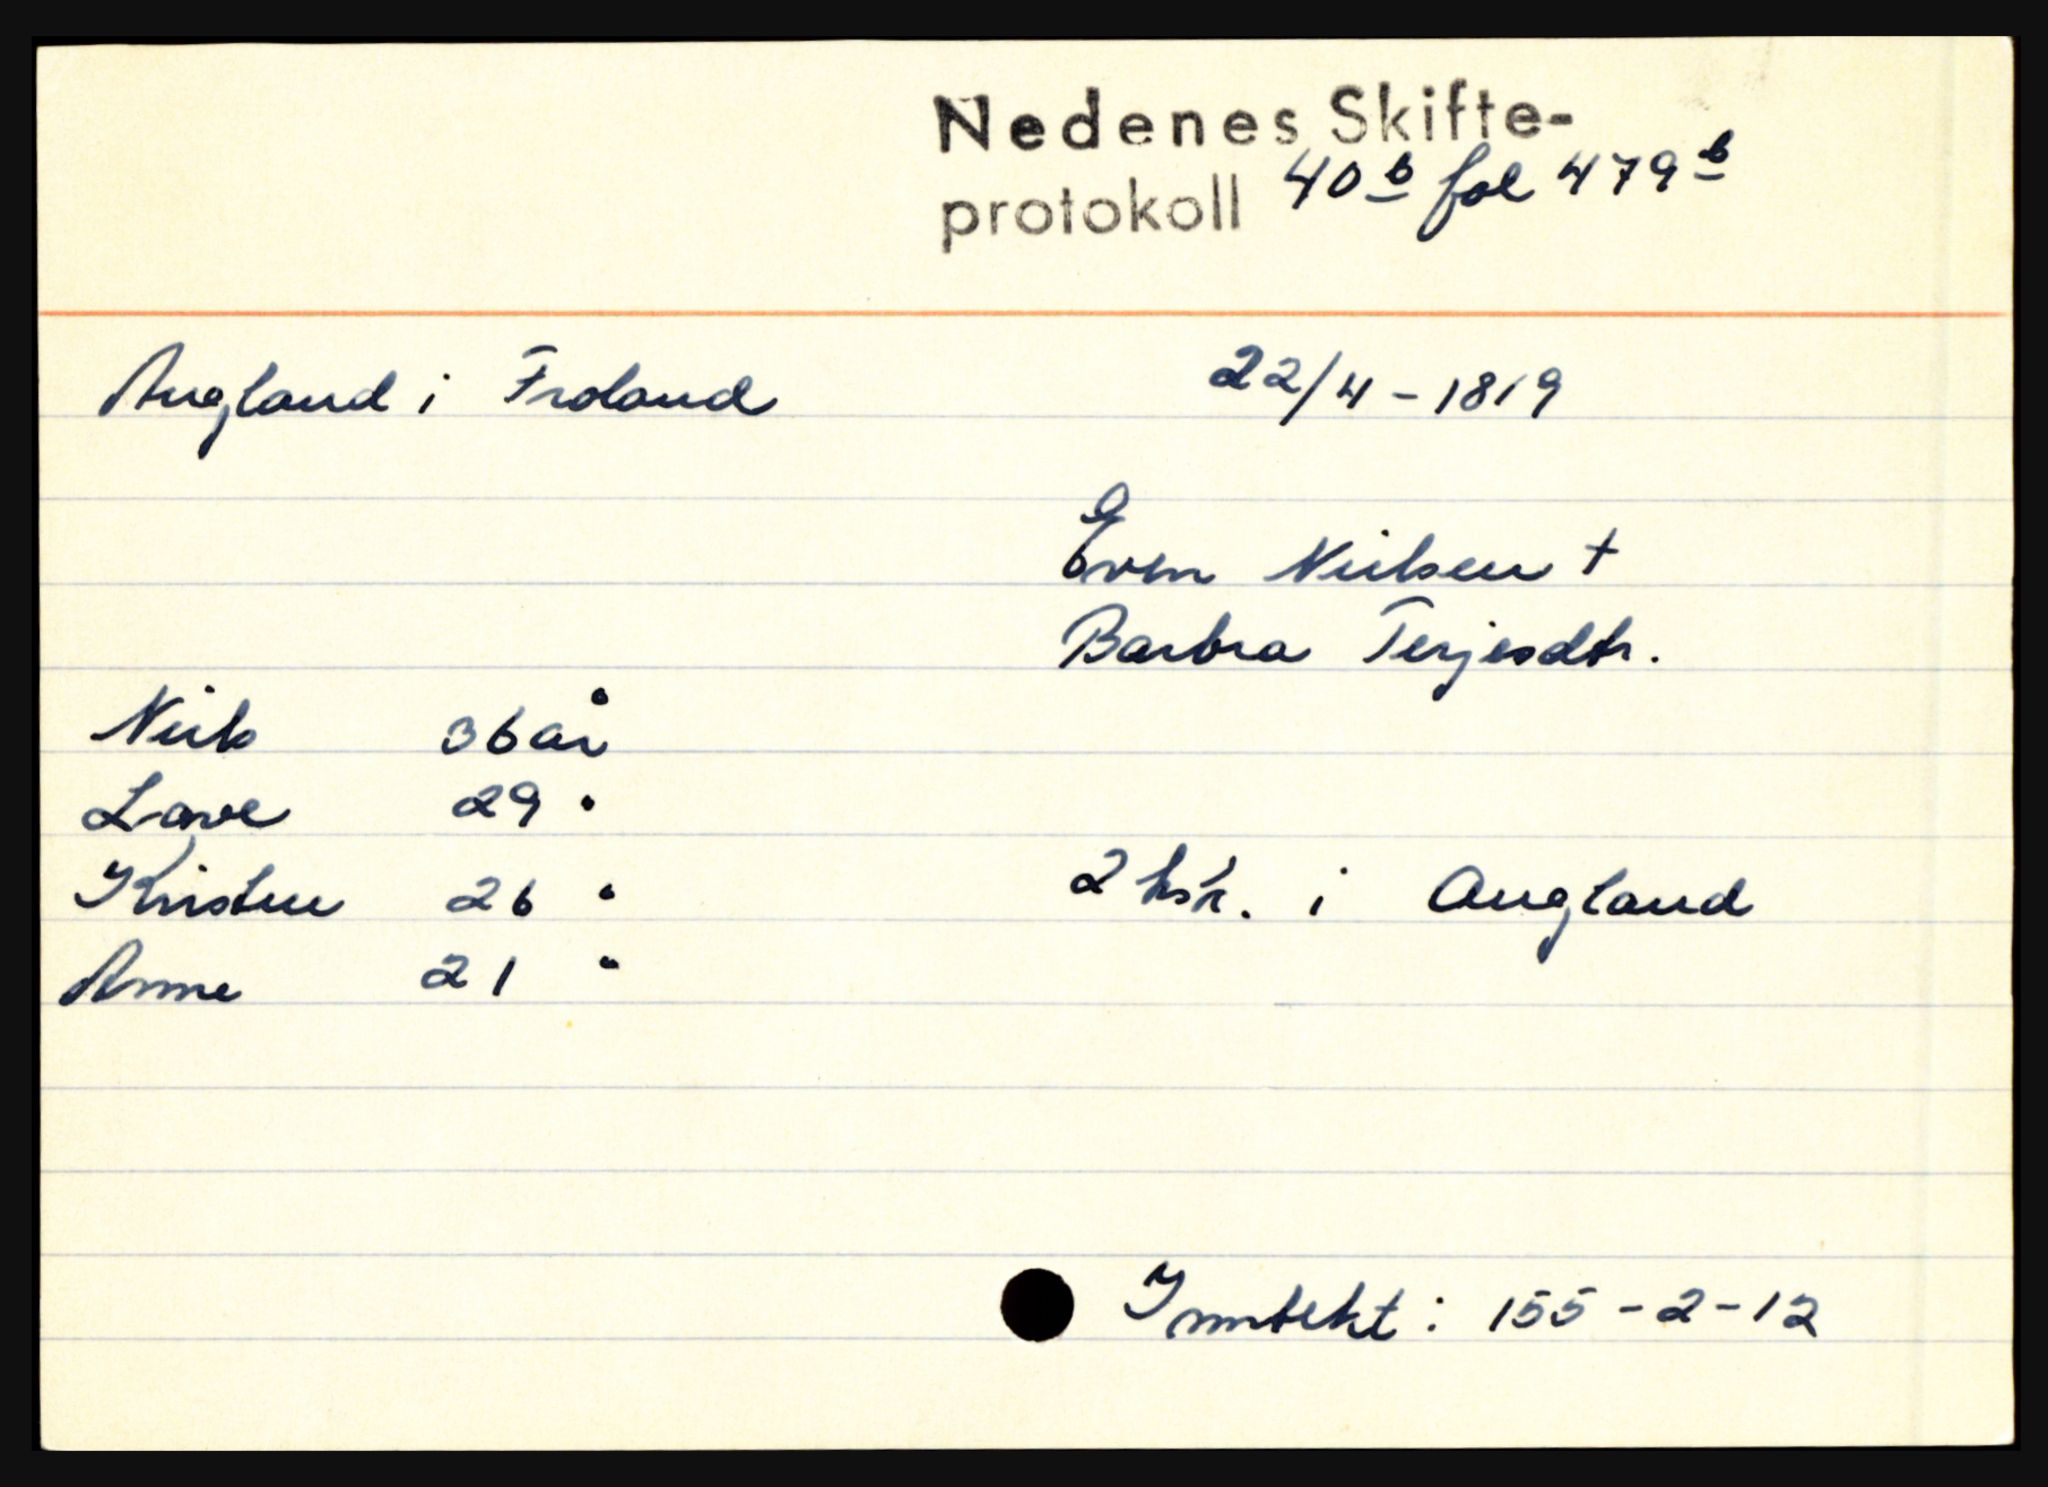 Nedenes Skifte-
protokoll 40b fol 479b
Augland i Froland 22/4 - 1819
Even Nielsen +
Barbra Terjesdtr.
Niels 36 år
Lave 29 "
Kristen 26 " 2 hs'r. i Augland
Anne 21 "
Inntekt: 155-2-12